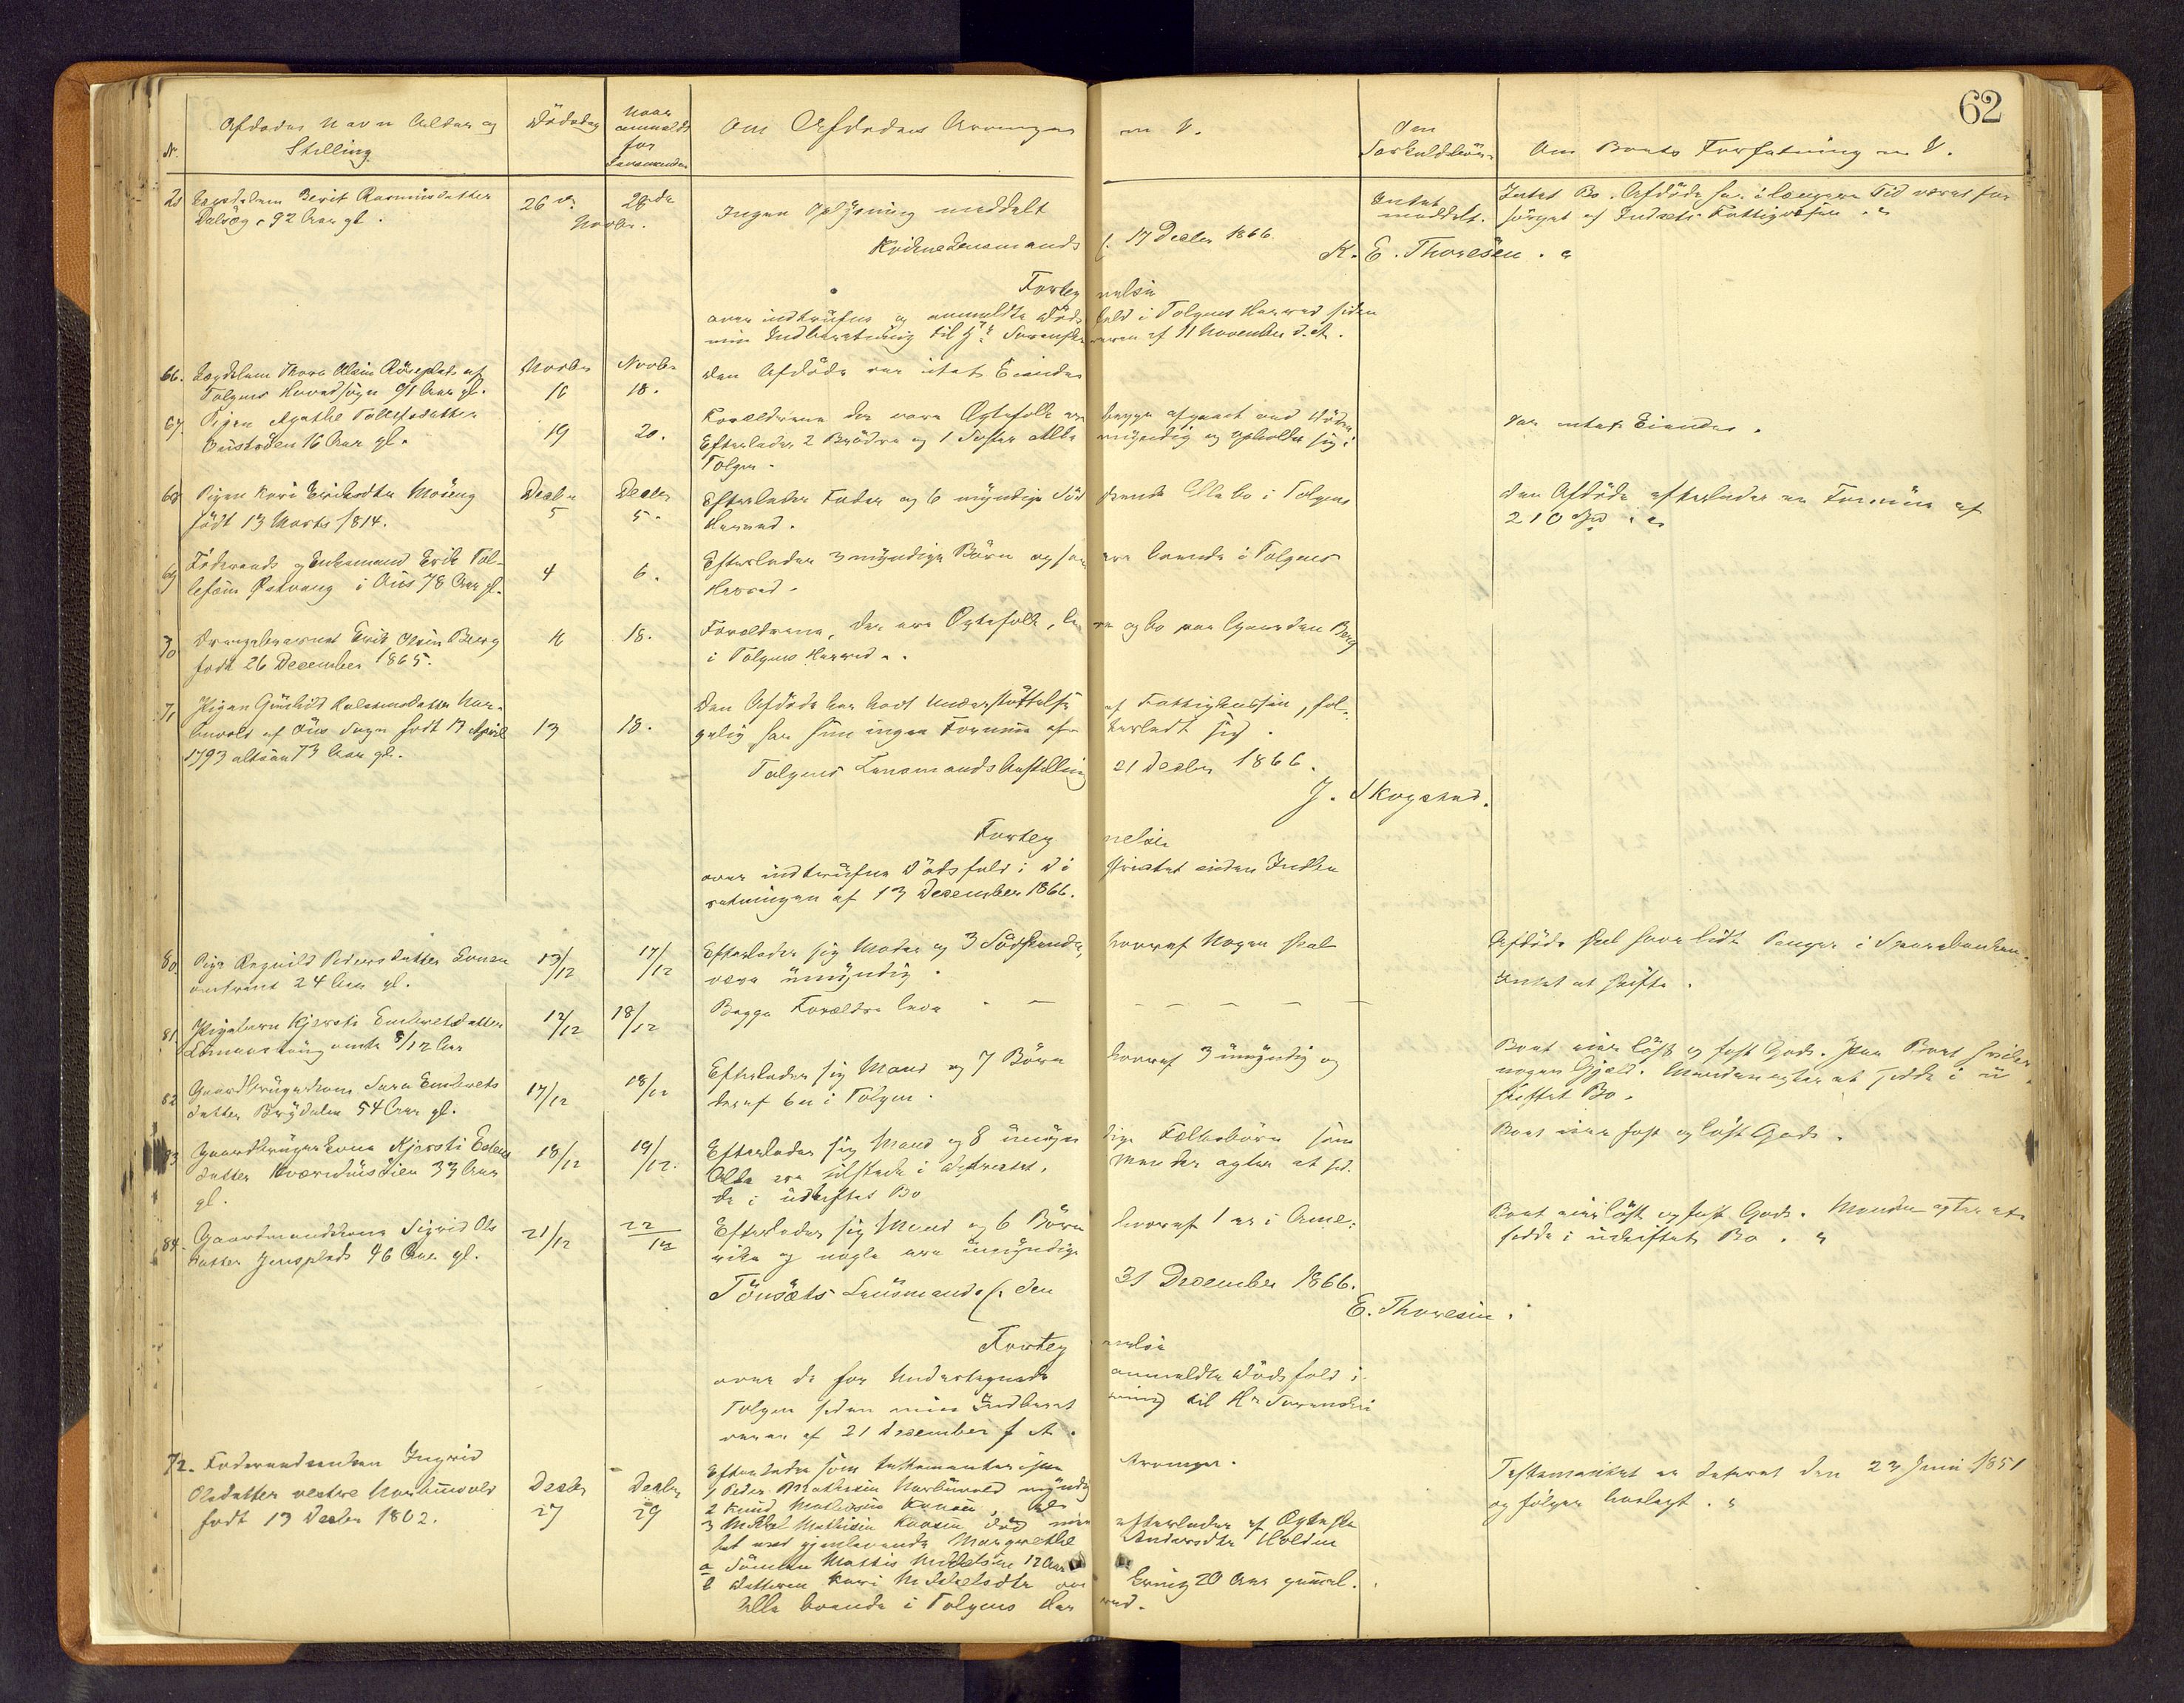 62
N.
Afdødes Navn Alder og
Stilling
Dødsdag
Naar
anmeldt
for
Lensmanden
Om Afdødes Arvinger m. V.
Om Boets Forfatning m. V.
28 Lægdslem Berit Rasmusdatter
92 Aar gl.
26de
28de
Novbr.
Ingen Oplysning meddelt
Intet
meddelt.
Intet Bo. Afdøde har i længere Tid været for
sørget af Indsets Fattigvæsen.
Kvikne Lensmands 17 Decbr 1866.
K. E. Thoresen.
Forteg nelse
over indtrufne og anmeldte Døds fald i Tolgens Herred siden
min Indberetning til Hr. Sorenskri veren af 11 November d. A.
66. Lægdslem Thore Olsen Røseplads af
Tolgens Hovedsogn 91 Aar gl.
Novbr
16
Novbr
18.
Den Afdøde var intet Eiendes
67. Pigen Agathe Tollefsdatter
16 Aar gl.
19
20.
Forældrene der vare Ægtefolk ere begge afgaaet ved Døden
Efterlader 2 Brødre og 1 Søster Alle myndig og opholder sig i
Tolgen.
Var intet Eiendes.
68 Pigen Kari Eriksdtr Moseng
født 13 Marts 1814.
Decbr
5
Decbr
5.
Efterlader Fader og 6 myndige Sød skende Alle bo i Tolgens
Herred.
Den Afdøde efterlader en Formue af
210 Spd
69 Føderaads og Enkemand Erik Tol-
lefsen Østvang i Øus 78 Aar gl.
4
6.
Efterlader 3 myndige Børn og som ere boende i Tolgens
Herred.
70 Drengebarnet Erik Olsen Berg
født 26 December 1865.
16
18.
Forældrene, der ere Ægtefolk, le ve og bo paa Gaarden Berg
i Tolgens Herred.
71 Pigen Gunhild Halstensdatter Nor-
huvold af Øus Sogn født 17 April
1793 altsaa 73 Aar gl.
13
18.
Den Afdøde har havt Understøttelse af Fattigkassen, føl-
gelig har hun ingen Formue ef terladt sig.
Tolgens Lensmands Bestilling 21 Decbr 1866.
J. Skogstad.
Forteg nelse
over indtrufne Dødsfald i Di striktet siden Indbe
retningen af 13 December 1866.
80 Pige Ragnild Pedersdatter
omtrent 24 Aar gl.
13/12
17/12
Efterlader sig Moder og 3 Sødskende, hvoraf Nogen skal
være umyndig.
Afdøde skal have lidt Penge i Sparebanken.
Intet at skifte.
81 Pigebarn Kjersti Embretsdatter
omtr 8/12 Aar
12/12
18/12
Begge Forældre leve
82 Gaardbrugerkone Sara Embrets
datter Brydalen 54 Aar gl.
17/12
18/12
Efterlader sig Mand og 7 Børn hvoraf 3 umyndig og
deraf 6 i Tolgen.
Boet eier løst og fast Gods. Paa Boet hviler
nogen Gjæld. Manden agter at sidde i u
skiftet Bo.
83 Gaardbrugerkone Kjersti Esten
datter Kværnhusøien 33 Aar
gl.
18/12
19/12.
Efterlader sig Mand og 8 umyn dige Fællesbørn som
Alle ere tilstede i Distriktet. Manden agter at sid-
de i uskiftet Bo
Boet eier fast og løst Gods.
84. Gaardmandskone Sigrid Ols
datter Jensplads 46 Aar gl.
21/12
22/12
Efterlader sig Mand og 6 Børn hvoraf 1 er i Ame-
rika og nogle ere umyndige
Boet eier løst og fast Gods. Manden agter at
sidde i uskiftet Bo.
Tönsæts Lensmands den 31 December 1866.
E. Thoresen.
Forteg nelse
over de for Undertegnede anmeldte Dødsfald i
Tolgen siden min Indberet ning til Hr Sorenskri
veren af 21 December f A.
72. Føderaadsenken Ingrid
Olsdatter vestre Norhuvold
født 13 Decbr 1802.
Decbr
27
Decbr
29
Efterlader som testamentariske Arvinger.
1 Peder Mathisen Norhuvold myndig
2 Knud Mathisen
3 Mikkel Mathisen død men efterlader af Ægteska
bet med gjenlevende Margrethe Andersdtr Holden
a Sønnen Mathis Mikkelsen 12 Aar
b Datteren Kari Mikkelsdtr 20 Aar gammel.
Alle boende i Tolgens Her red.
Testamentet er dateret den 23 Juni 1851
og følger hoslagt.